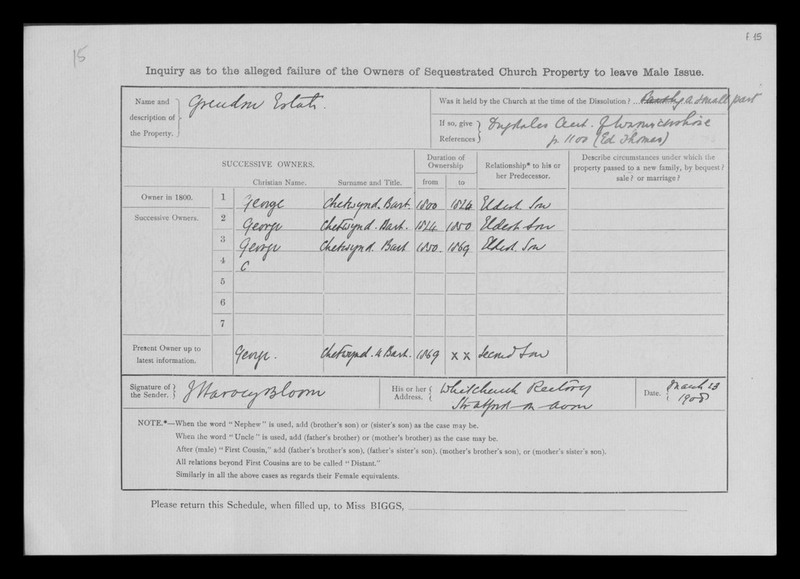 f. 15
15
Inquiry as to the alleged failure of the Owners of Sequestrated Church Property to leave Male Issue.
Name and description of the Property. Grendon Estate.
Was it held by the Church at the time of the Dissolution? a small part
If so, give References Dugdales Warwickshire
p 1100 (Ed Thomas)
SUCCESSIVE OWNERS.
Christian Name. Surname and Title.
Duration of Ownership
from to
Relationship* to his or her Predecessor.
Describe circumstances under which the property passed to a new family, by bequest? sale? or marriage?
Owner in 1800. 1 George Chetwynd. Bart. 1800 1824 Eldest Son
Successive Owners. 2 George Chetwynd. Bart. 1824 1850 Eldest Son
3 George Chetwynd. Bart 1850 1869 Eldest Son
4 C
5
6
7
Present Owner up to latest information. George. Chetwynd. 4 Bart. 1869 x x Second Son
Signature of the Sender. J Harvey Bloom
His or her Address, Whitchurch Rectory
Stratford-on-Avon
Date. March 23
1908
NOTE.*—When the word "Nephew" is used, add (brother's son) or (sister's son) as the case may be.
When the word "Uncle" is used, add (father's brother) or (mother's brother) as the case may be.
After (male) "First Cousin," add (father's brother's son), (father's sister's son), (mother's brother's son), or (mother's sister's son).
All relations beyond First Cousins are to be called "Distant."
Similarly in all the above cases as regards their Female equivalents.
Please return this Schedule, when filled up, to Miss BIGGS,